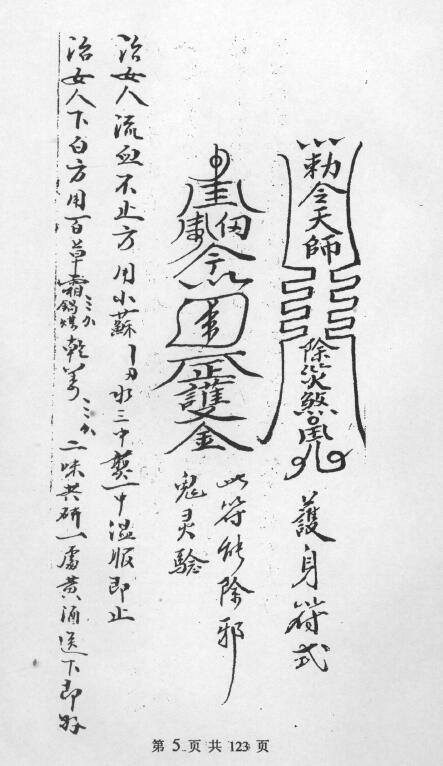 勅令天師
除災煞鬼
護身符式
正護金
此符能除邪
鬼灵驗
治女人流血不止方用小蘇水三中煲一中温服即止
治女人下白方用百草霜三分乾姜三分二味共研黄酒送下即好
鍋煤
第 5 页 共 123 页